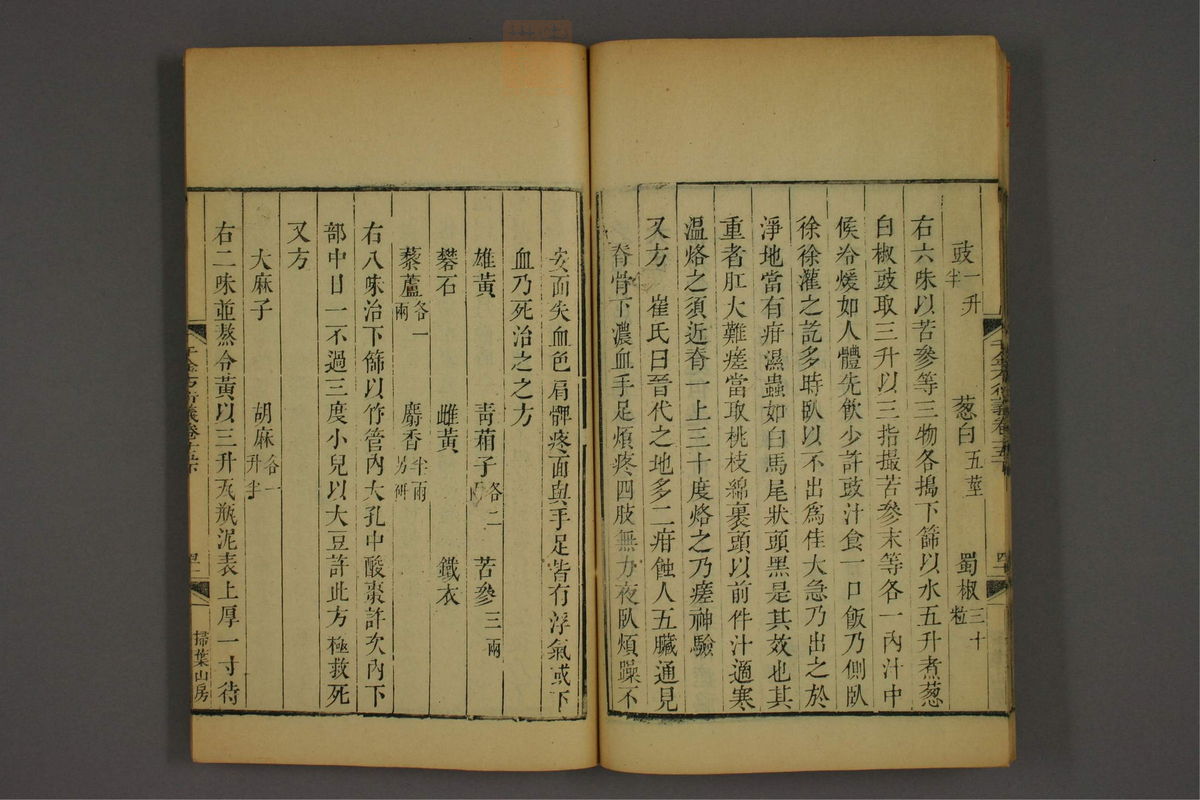 豉一升半　葱白五莖　蜀椒三十粒
右六味以苦參等三物各搗下篩以水五升煮葱
白椒豉取三升以三指撮苦參末等各一內汁中
候冷煖如人體先飲少許豉汁食一口飯乃側臥
徐徐灌之訖多時臥以不出爲佳大急乃出之於
淨地當有疳濕蟲如白馬尾狀頭黑是其效也其
重者肛大難瘥當取桃枝綿裹頭以前件汁適寒
温烙之須近脊一上三十度烙之乃瘥神驗
又方　崔氏曰晉代之地多二疳蝕人五臟通見
脊骨下濃血手足煩疼四肢無力夜臥煩躁不
安面失血色肩髀疼面與手足皆有浮氣或下
血乃死治之之方
雄黃　青葙子各二兩　苦參三兩
礬石　雌黃　鐵衣
藜蘆各一兩　麝香半兩另研
右八味治下篩以竹管內大孔中酸棗許次內下
部中日一不過三度小兒以大豆許此方極救死
又方
大麻子　胡麻各一升半
右二味並熬令黃以三升瓦瓶泥表上厚一寸待
千金方衍義卷十五下
四十二
掃葉山房